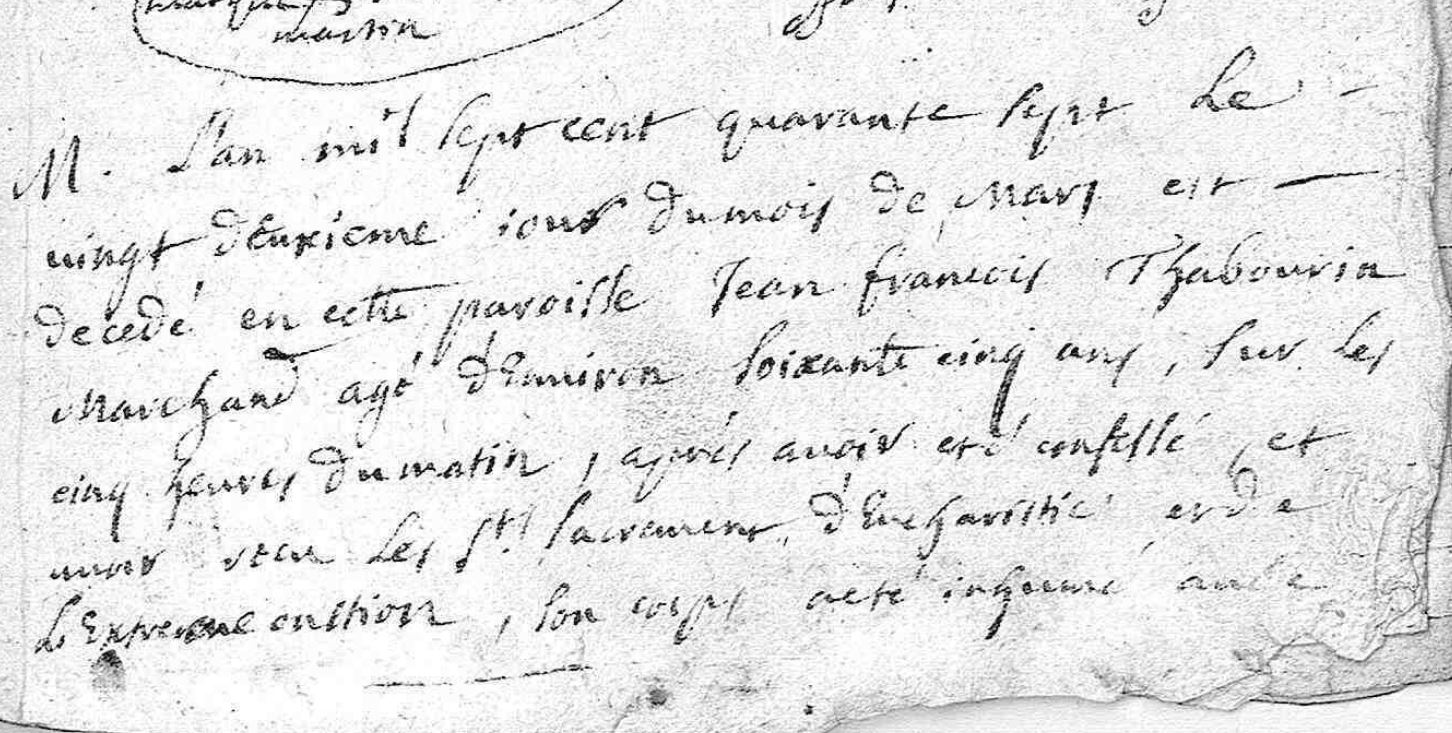 marson
M. L'an mil sept cent quarante sept Le -
vingt deuxieme iour du mois de Mars est —
decedé en cette paroisse Jean francois Thabourin
Marchand agé d'Enuiron soixante cinq ans, sur les
cinq heures du matin, aprés auoir eté confessé, et
auoir receu Les Sts sacrement d'Eucharistie et de
L'Extreme onction, son corps a eté inhumé